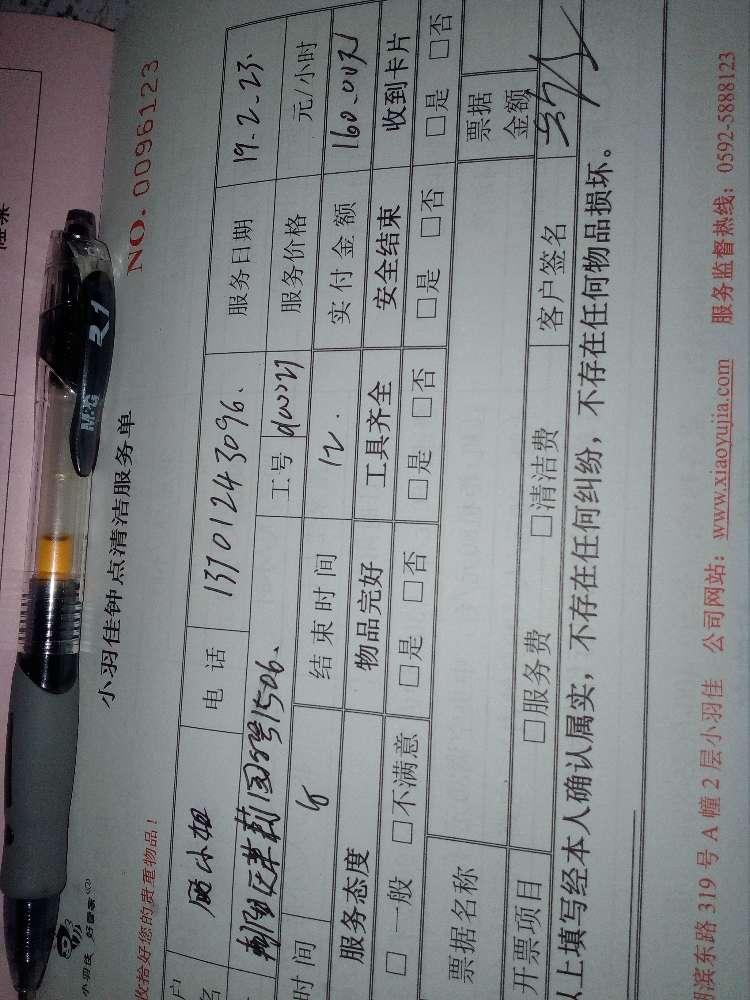 小羽佳 好管家
收拾好您的贵重物品！
小羽佳钟点清洁服务单
NO. 0096123
M&G
R1
电话 13701243096. 服务日期 19.2.23.
小姐
号1506. 工号 服务价格 元/小时
时间 8 结束时间 12. 实付金额 160.00元
服务态度 物品完好 工具齐全 安全结束 收到卡片
□ 一般 □不满意 □是 □否 □是 □否 □是 □否 □是 □否
票据名称 票据金额
开票项目 □服务费 □清洁费 客户签名
以上填写经本人确认属实，不存在任何纠纷，不存在任何物品损坏。
滨东路 319 号 A 幢 2 层小羽佳 公司网站：www.xiaoyujia.com 服务监督热线：0592-5888123